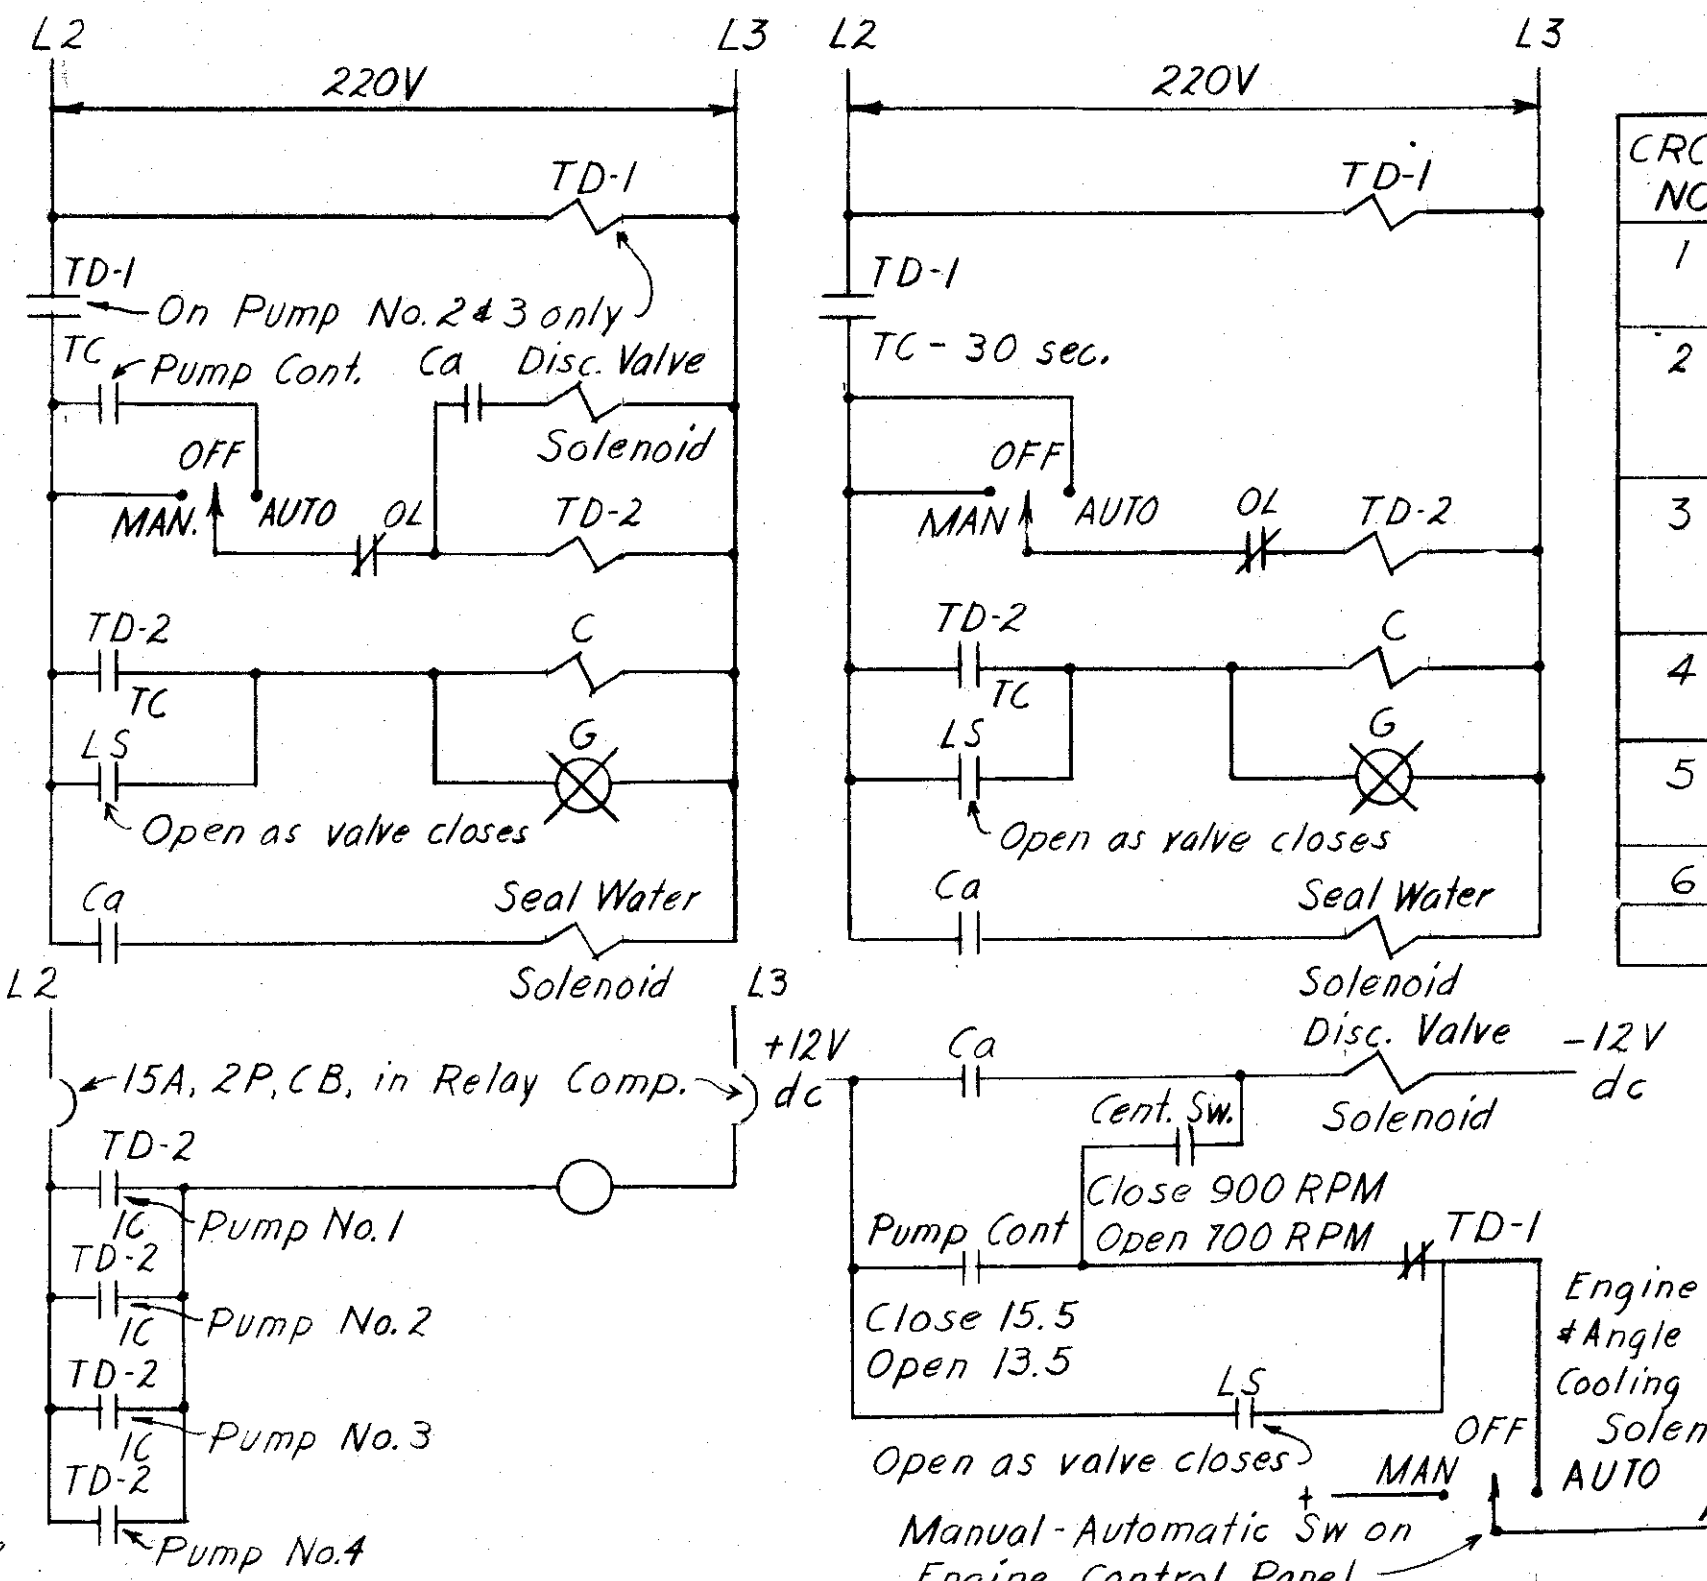 L2
L3
220V
TD-1
TD-1
On Pump No. 2 & 3 only
TC
Pump Cont.
Ca
Disc. Valve
Solenoid
OFF
MAN.
AUTO
OL
TD-2
TD-2
C
TC
LS
G
Open as valve closes
Ca
Seal Water
Solenoid
L2
L3
220V
TD-1
TD-1
TC - 30 sec.
OFF
MAN
AUTO
OL
TD-2
TD-2
C
TC
LS
G
Open as valve closes
Ca
Seal Water
Solenoid
CRC
NO
1
2
3
4
5
6
L2
L3
15A, 2P, CB, in Relay Comp.
TD-2
1C
Pump No. 1
TD-2
1C
Pump No. 2
TD-2
1C
Pump No. 3
TD-2
Pump No. 4
+12V
dc
Ca
Disc. Valve
Solenoid
-12V
dc
Cent. Sw.
Close 900 RPM
Open 700 RPM
Pump Cont
TD-1
Close 15.5
Open 13.5
LS
Open as valve closes
Engine
& Angle
Cooling
Solen
OFF
MAN
AUTO
+
Manual-Automatic Sw on
Engine Control Panel